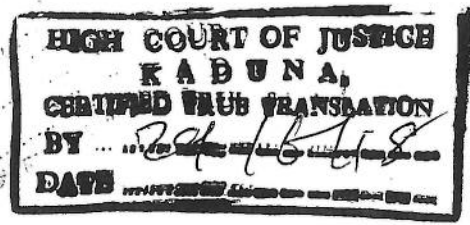 HIGH COURT OF JUSTICE
KADUNA,
CERTIFIED TRUE TRANSLATION
BY
DATE